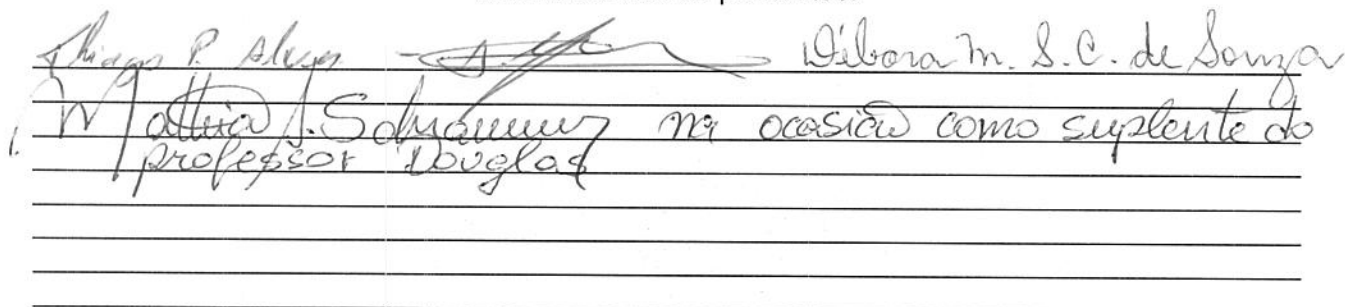 Thiago P. Alves Débora M. S. C. de Souza
Mathias J. Schramm na ocasião como suplente do
professor Douglas